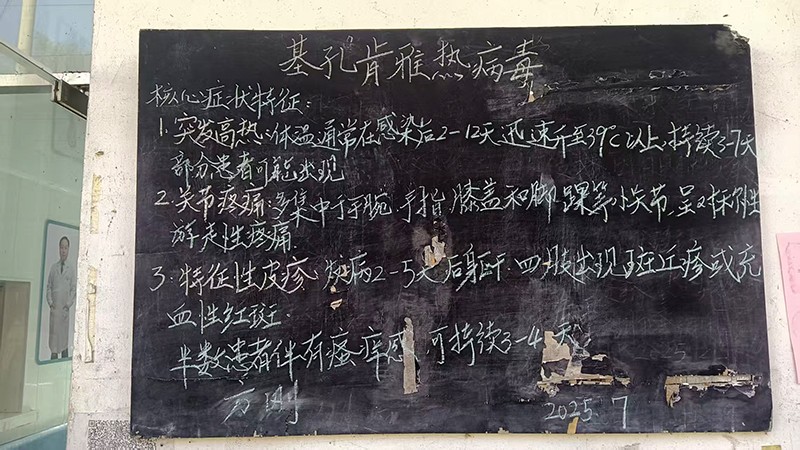 基孔肯雅热病毒
核心症状特征:
1.突发高热:体温通常在感染后2-12天迅速升至39℃以上,持续3-7天
部分患者可能出现
2.关节疼痛:多集中于手腕、手指、膝盖和脚踝等小关节,呈对称性
游走性疼痛.
3.特征性皮疹 发病2-5天后躯干.四肢出现斑丘疹或充
血性红斑.
半数患者伴有瘙痒感,可持续3-4天
2025.7